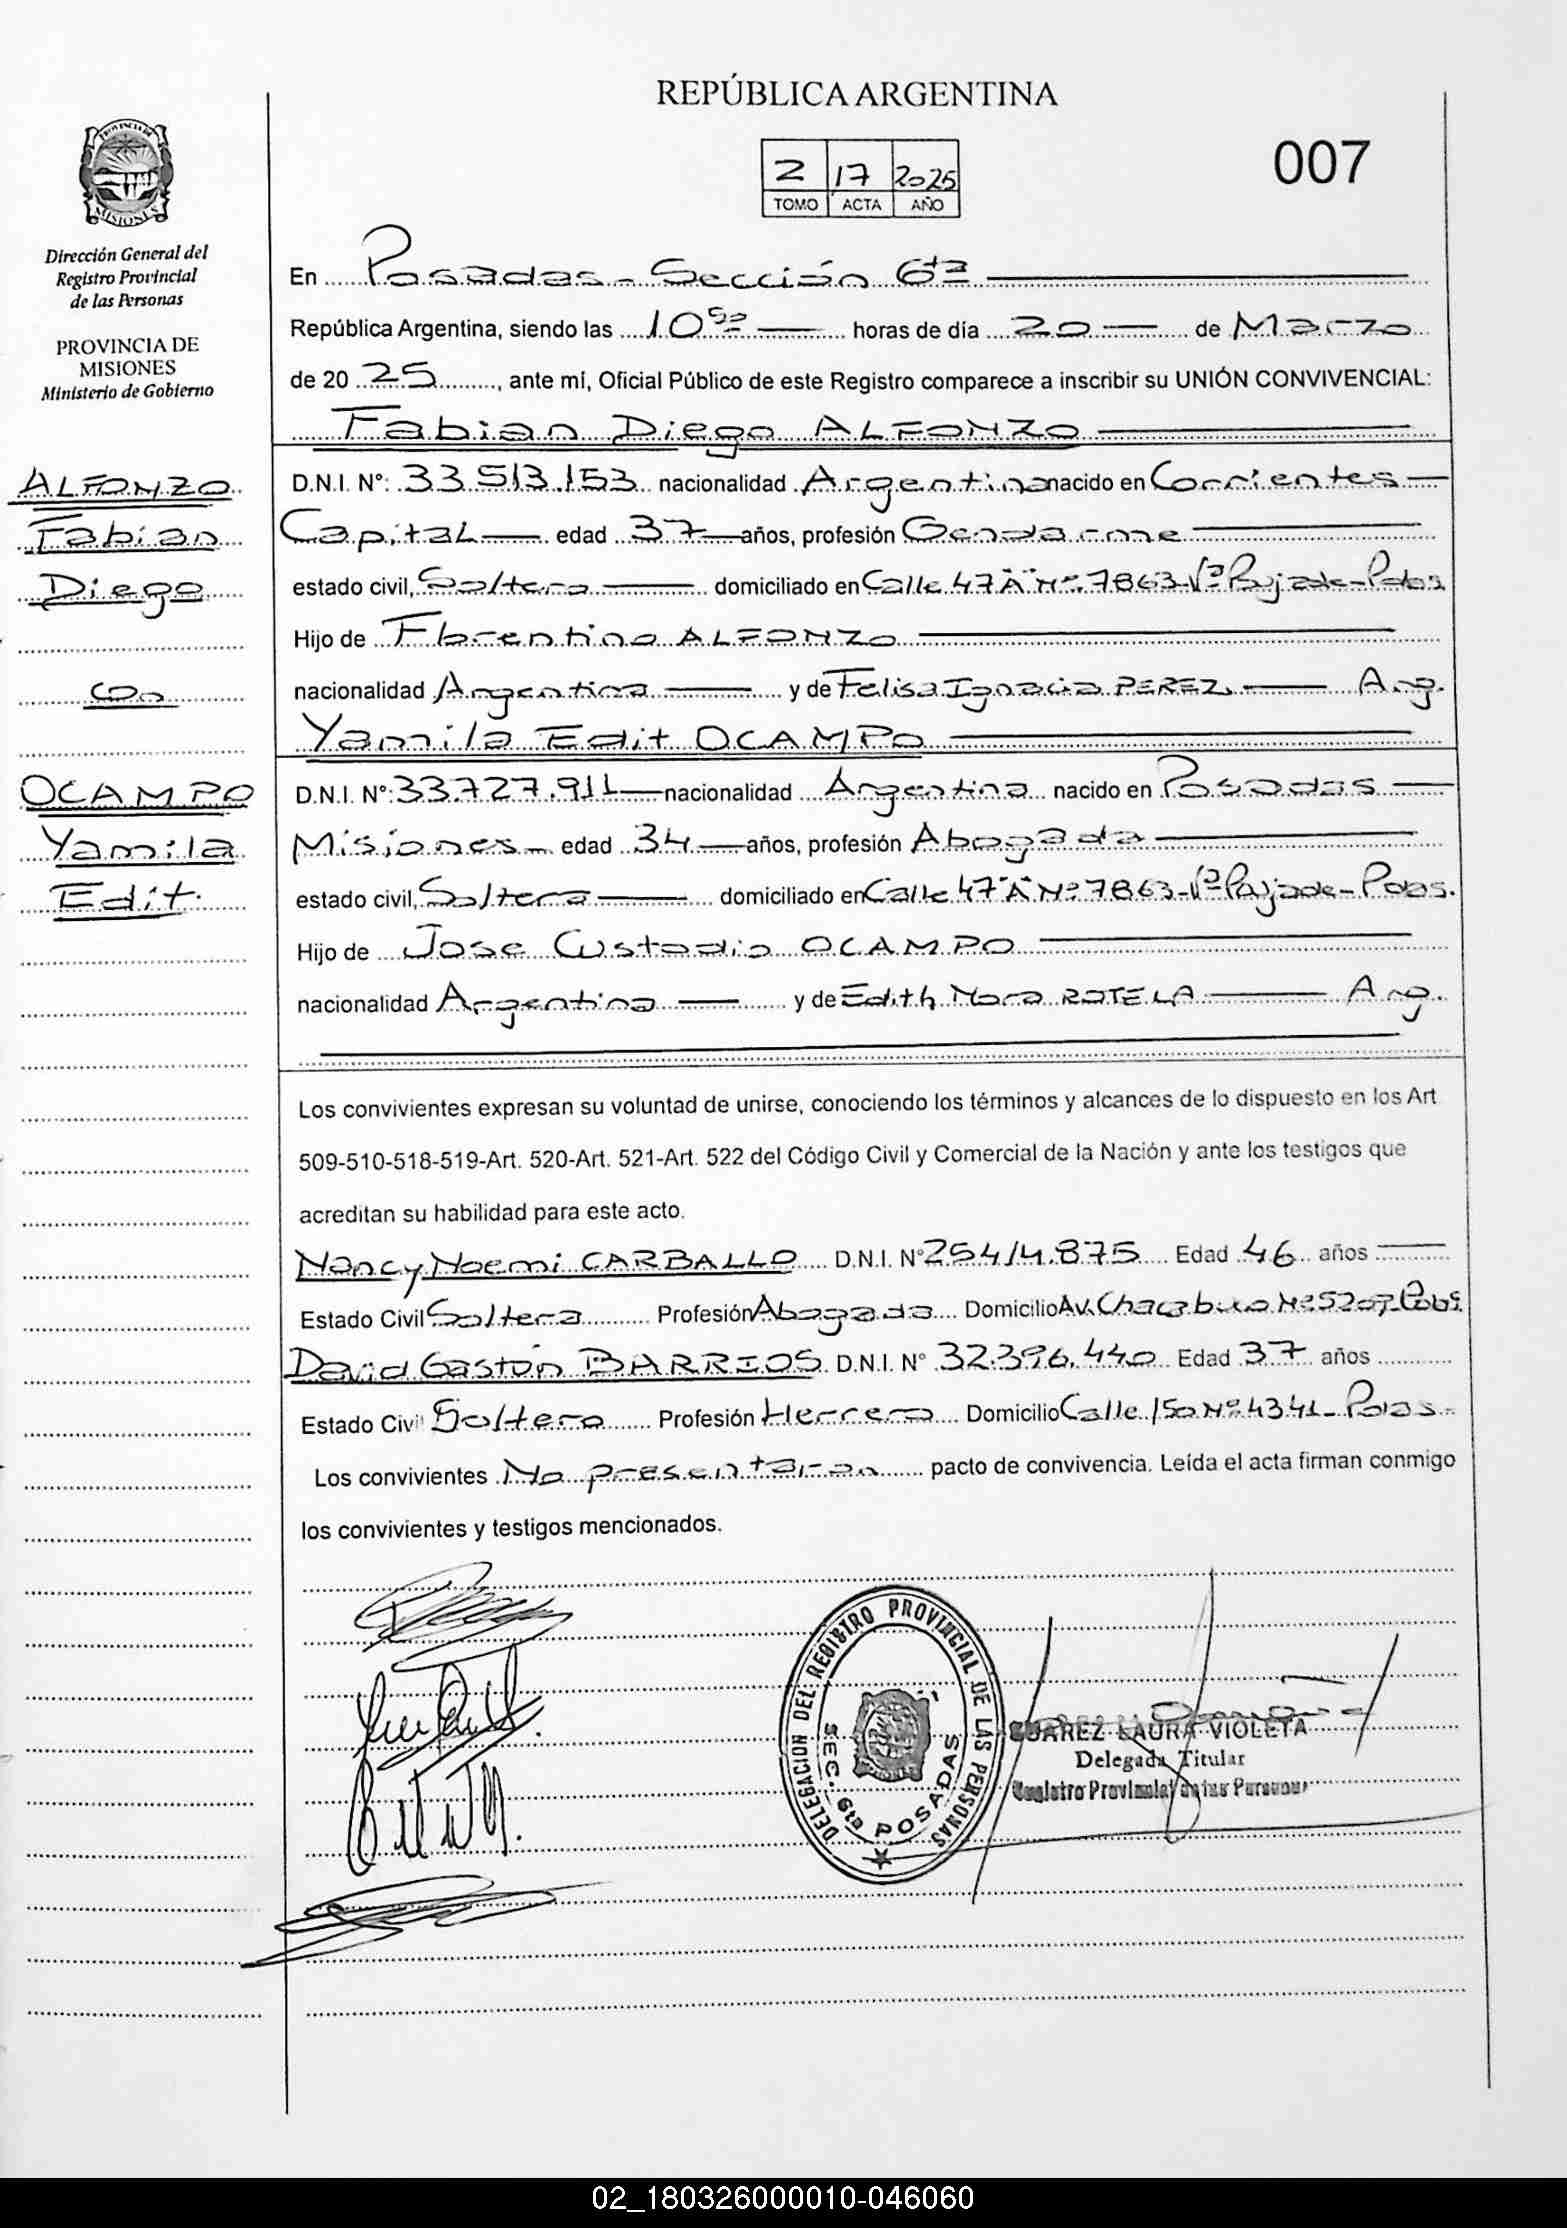 REPÚBLICA ARGENTINA
2 17 2025
TOMO ACTA AÑO
007
PROVINCIA DE
MISIONES
Dirección General del
Registro Provincial
de las Personas
PROVINCIA DE
MISIONES
Ministerio de Gobierno
ALFONZO
Fabian
Diego
con
OCAMPO
Yamila
Edit.
En Posadas - Sección 6ta
República Argentina, siendo las 10:50 horas de día 20 de Marzo
de 20 25, ante mí, Oficial Público de este Registro comparece a inscribir su UNIÓN CONVIVENCIAL:
Fabian Diego ALFONZO
D.N.I. Nº: 33.513.153 nacionalidad Argentina nacido en Corrientes
Capital edad 37 años, profesión Gendarme
estado civil, Soltero domiciliado en Calle 47"A" Nº 7863-Vª Pujade-Pdas
Hijo de Florentino ALFONZO
nacionalidad Argentina y de Felisa Ignacia PEREZ Arg.
Yamila Edit OCAMPO
D.N.I. Nº: 33.727.911 nacionalidad Argentina nacido en Posadas
Misiones edad 34 años, profesión Abogada
estado civil, Soltera domiciliado en Calle 47"A" Nº 7863-Vª Pujade-Pdas.
Hijo de Jose Custodio OCAMPO
nacionalidad Argentina y de Edith Nora ROTELA Arg.
Los convivientes expresan su voluntad de unirse, conociendo los términos y alcances de lo dispuesto en los Art
509-510-518-519-Art. 520-Art. 521-Art. 522 del Código Civil y Comercial de la Nación y ante los testigos que
acreditan su habilidad para este acto.
Nancy Noemi CARBALLO D.N.I. Nº 25414.875 Edad 46 años
Estado Civil Soltera Profesión Abogada Domicilio Av. Chacabuco Nº 5207-Pdas.
David Gastón BARRIOS D.N.I. Nº 32.396.440 Edad 37 años
Estado Civil Soltero Profesión Herrero Domicilio Calle 150 Nº 4341-Pdas-
Los convivientes No presentaran pacto de convivencia. Leída el acta firman conmigo
los convivientes y testigos mencionados.
DELEGACION DEL REGISTRO PROVINCIAL DE LAS PERSONAS
SEC. 6ta POSADAS
SUAREZ LAURA VIOLETA
Delegada Titular
Registro Provincial de las Personas
02_180326000010-046060